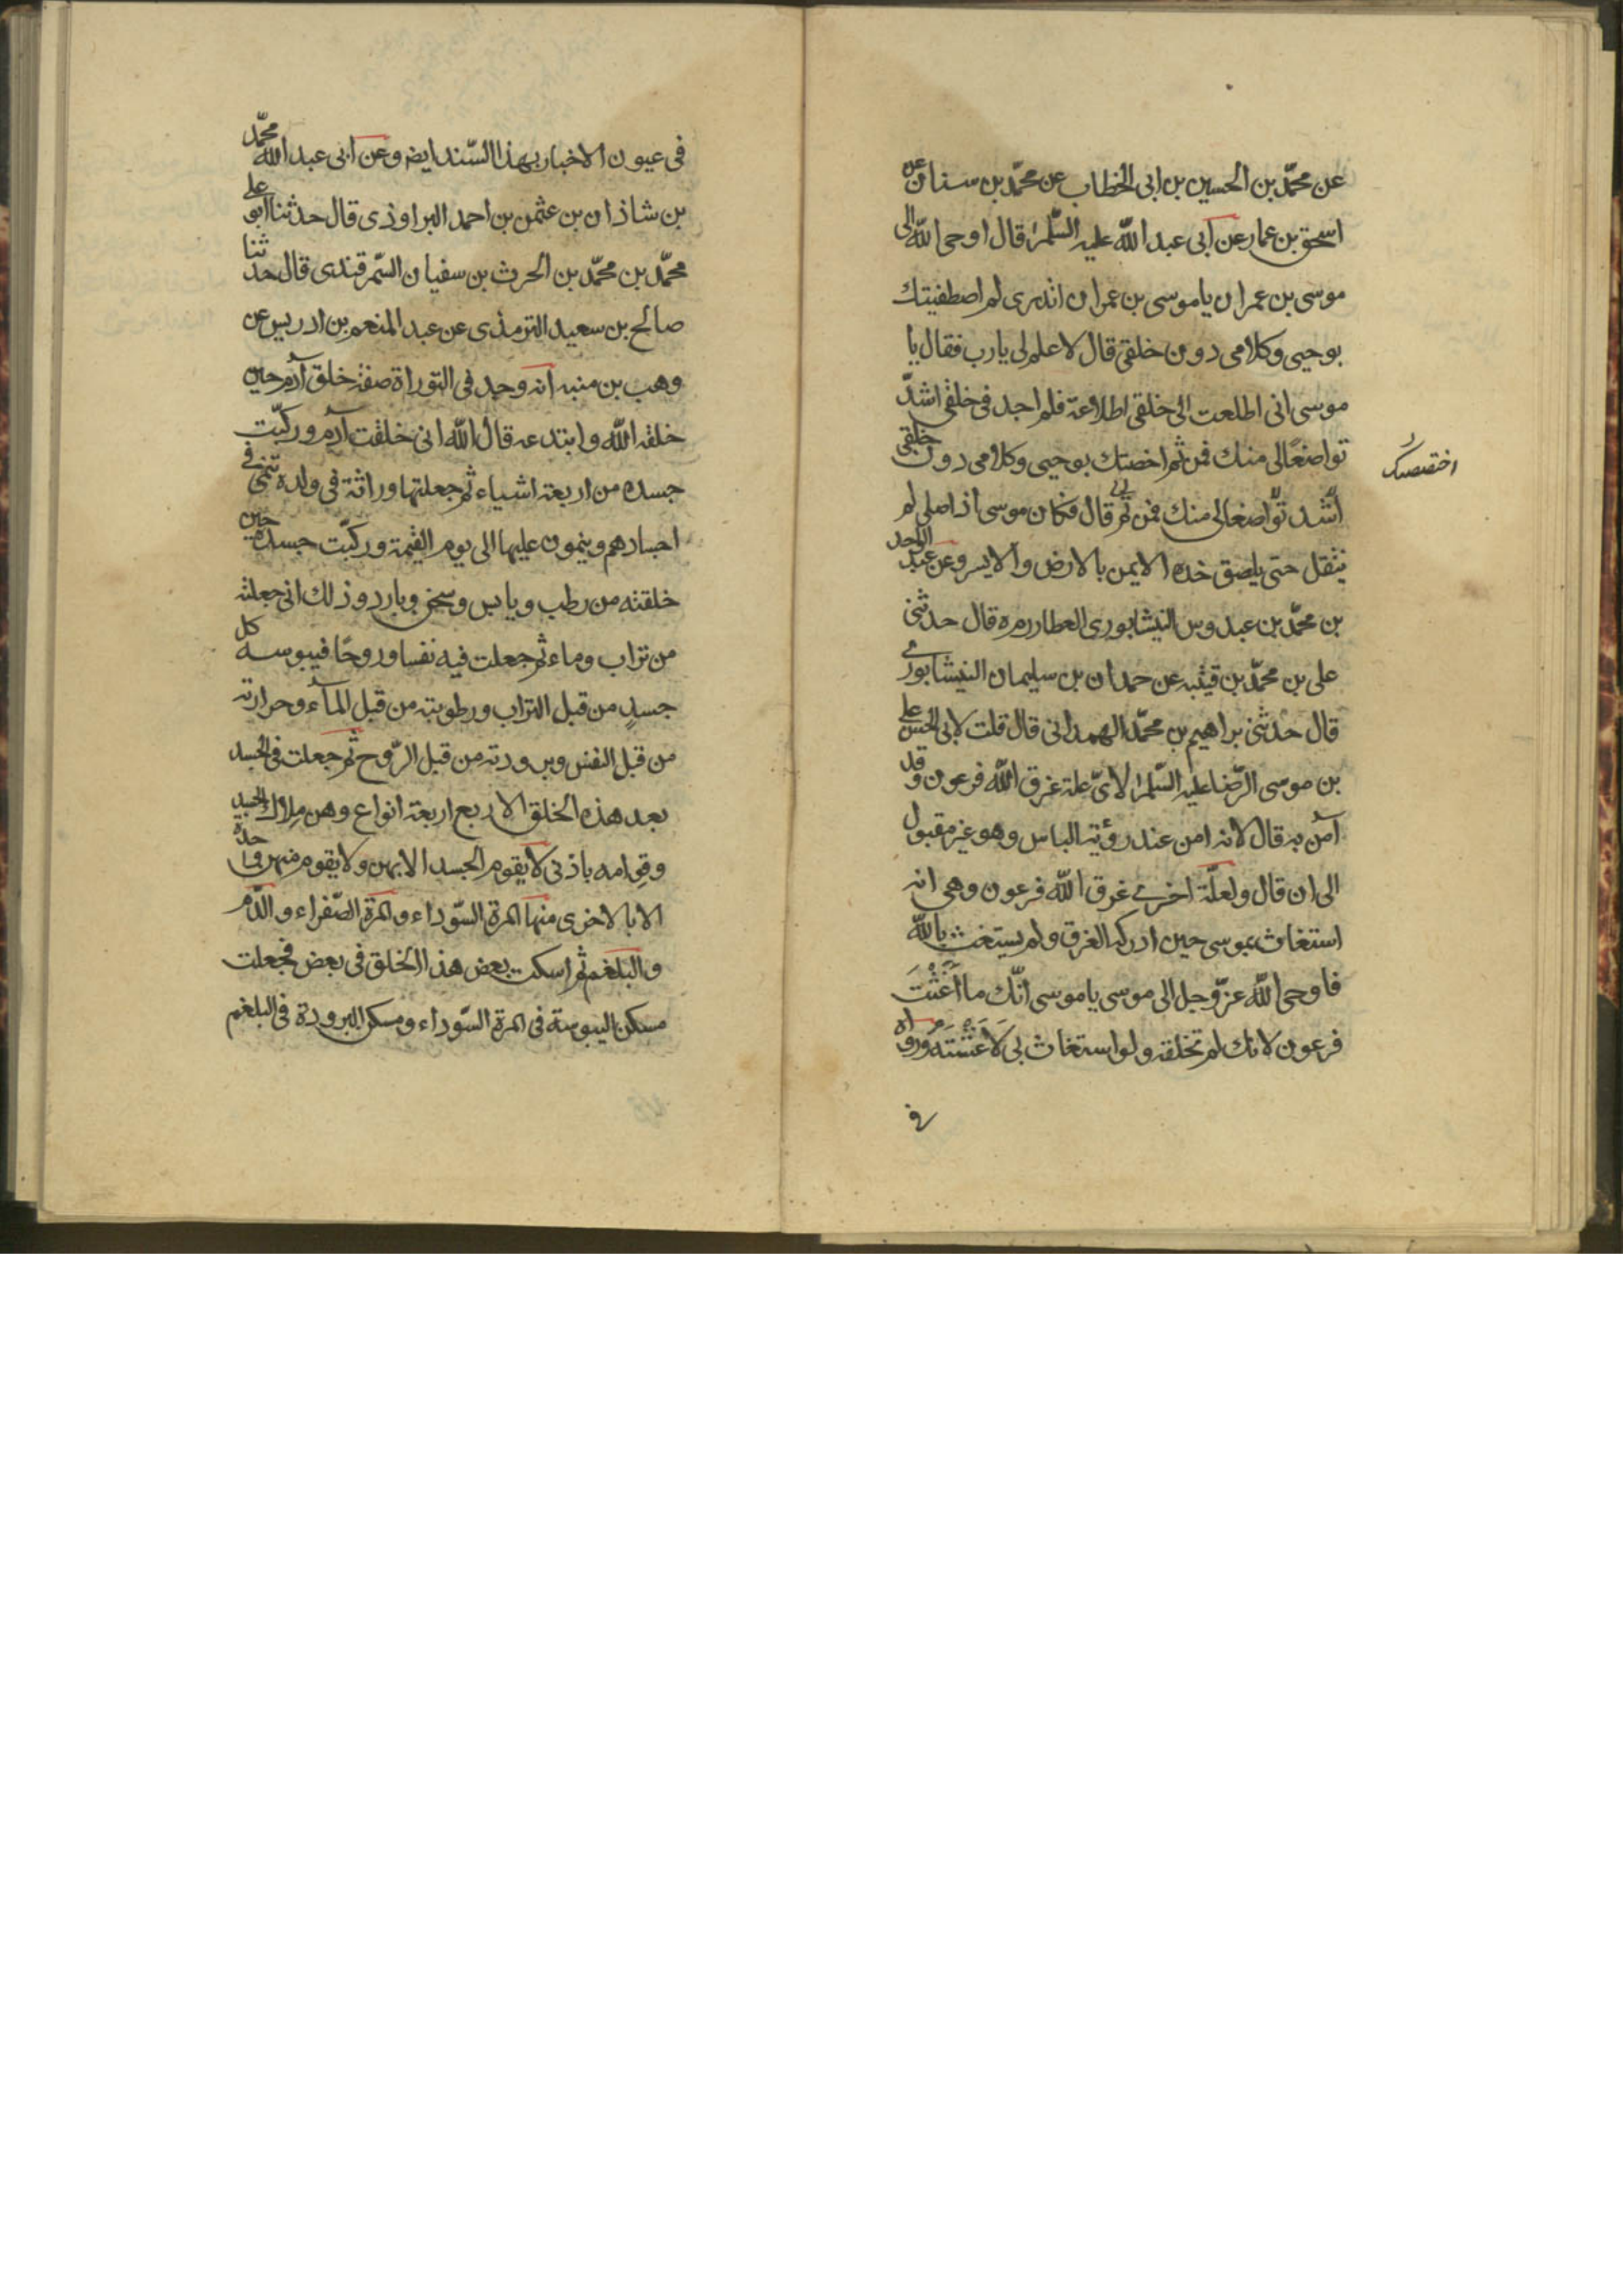 عن محمّد بن الحسين بن ابى الخطاب عن محمّد بن سنان عن
اسحق بن عمار عن ابى عبد الله عليه السّلم قال اوحى الله الى
موسى بن عمران ياموسى بن عمران اتدرى لم اصطفيتك
بوحيى وكلامى دون خلقى قال لا علم لى يارب فقال يا
موسى انى اطلعت الى خلقى اطلاعة فلم اجد فى خلقى اشدّ
تواضعًا لى منك فمن ثم اخصتك بوحيى وكلامى دون خلقى
اختصصك
اشد تواضعا لى منك فمن ثم قال فكان موسى اذا صلى لم
ينتقل حتى يلصق خده الايمن بالارض والايسر وعن عبد الواحد
بن محمّد بن عبدوس النيشابورى العطار ره قال حدثنى
على بن محمّد بن قيتبه عن حمدان بن سليمان النيشابورى
قال حدثنى براهيم بن محمّد الهمدانى قال قلت لابى الحسن على
بن موسى الرّضا عليه السّلم لاىّ علة غرق الله فرعون وقد
آمن به قال لانه امن عند رؤية الباس وهو غير مقبول
الى ان قال ولعلّة اخرى غرق الله فرعون وهى انه
استغاث بموسى حين ادركه الغرق ولم يستغث بالله
فاوحى الله عزّ وجل الى موسى ياموسى انّك ما اَغَثْتَ
فرعون لانك لم تخلقه ولو استغاث بى لَاَغَثْتَه ورواه
فى
فى عيون الاخبار بهذا السّند ايضا وعن ابى عبد الله محمّد
بن شاذان بن عثمن بن احمد البراوذى قال حدثنا ابو على
محمّد بن محمّد بن الحرث بن سفيان السّمرقندى قال حدثنا
صالح بن سعيد الترمذى عن عبد المنعم بن ادريس عن
وهب بن منبه انه وجد فى التوراة صفة خلق آدم حين
خلقه الله وابتدعه قال الله انى خلقت آدم وركّبت
جسده من اربعة اشياء ثم جعلتها وراثة فى ولده تنمى فى
اجسادهم وينمون عليها الى يوم القيمة وركّبت جسده حين
خلقته من رطب ويابس وسخن وبارد وذلك انى جعلته
من تراب وماء ثم جعلت فيه نفسا وروحًا فيبوسه كل
جسدٍ من قبل التراب ورطوبته من قبل المآء وحرارته
من قبل النفس وبرودته من قبل الرّوح ثم جعلت فى الجسد
بعد هذه الخلق الاربع اربعة انواع وهن ملاك الجسد
وقوامه باذنى لا يقوم الجسد الا بهن ولا يقوم منهن واحدة
الا بالاخرى منها المرة السّوداء والمرة الصّفراء والدّم
والبلغم ثم اسكنت بعض هذا الخلق فى بعض فجعلت
مسكن اليبوسة فى المرة السّوداء ومسكن البرودة فى البلغم